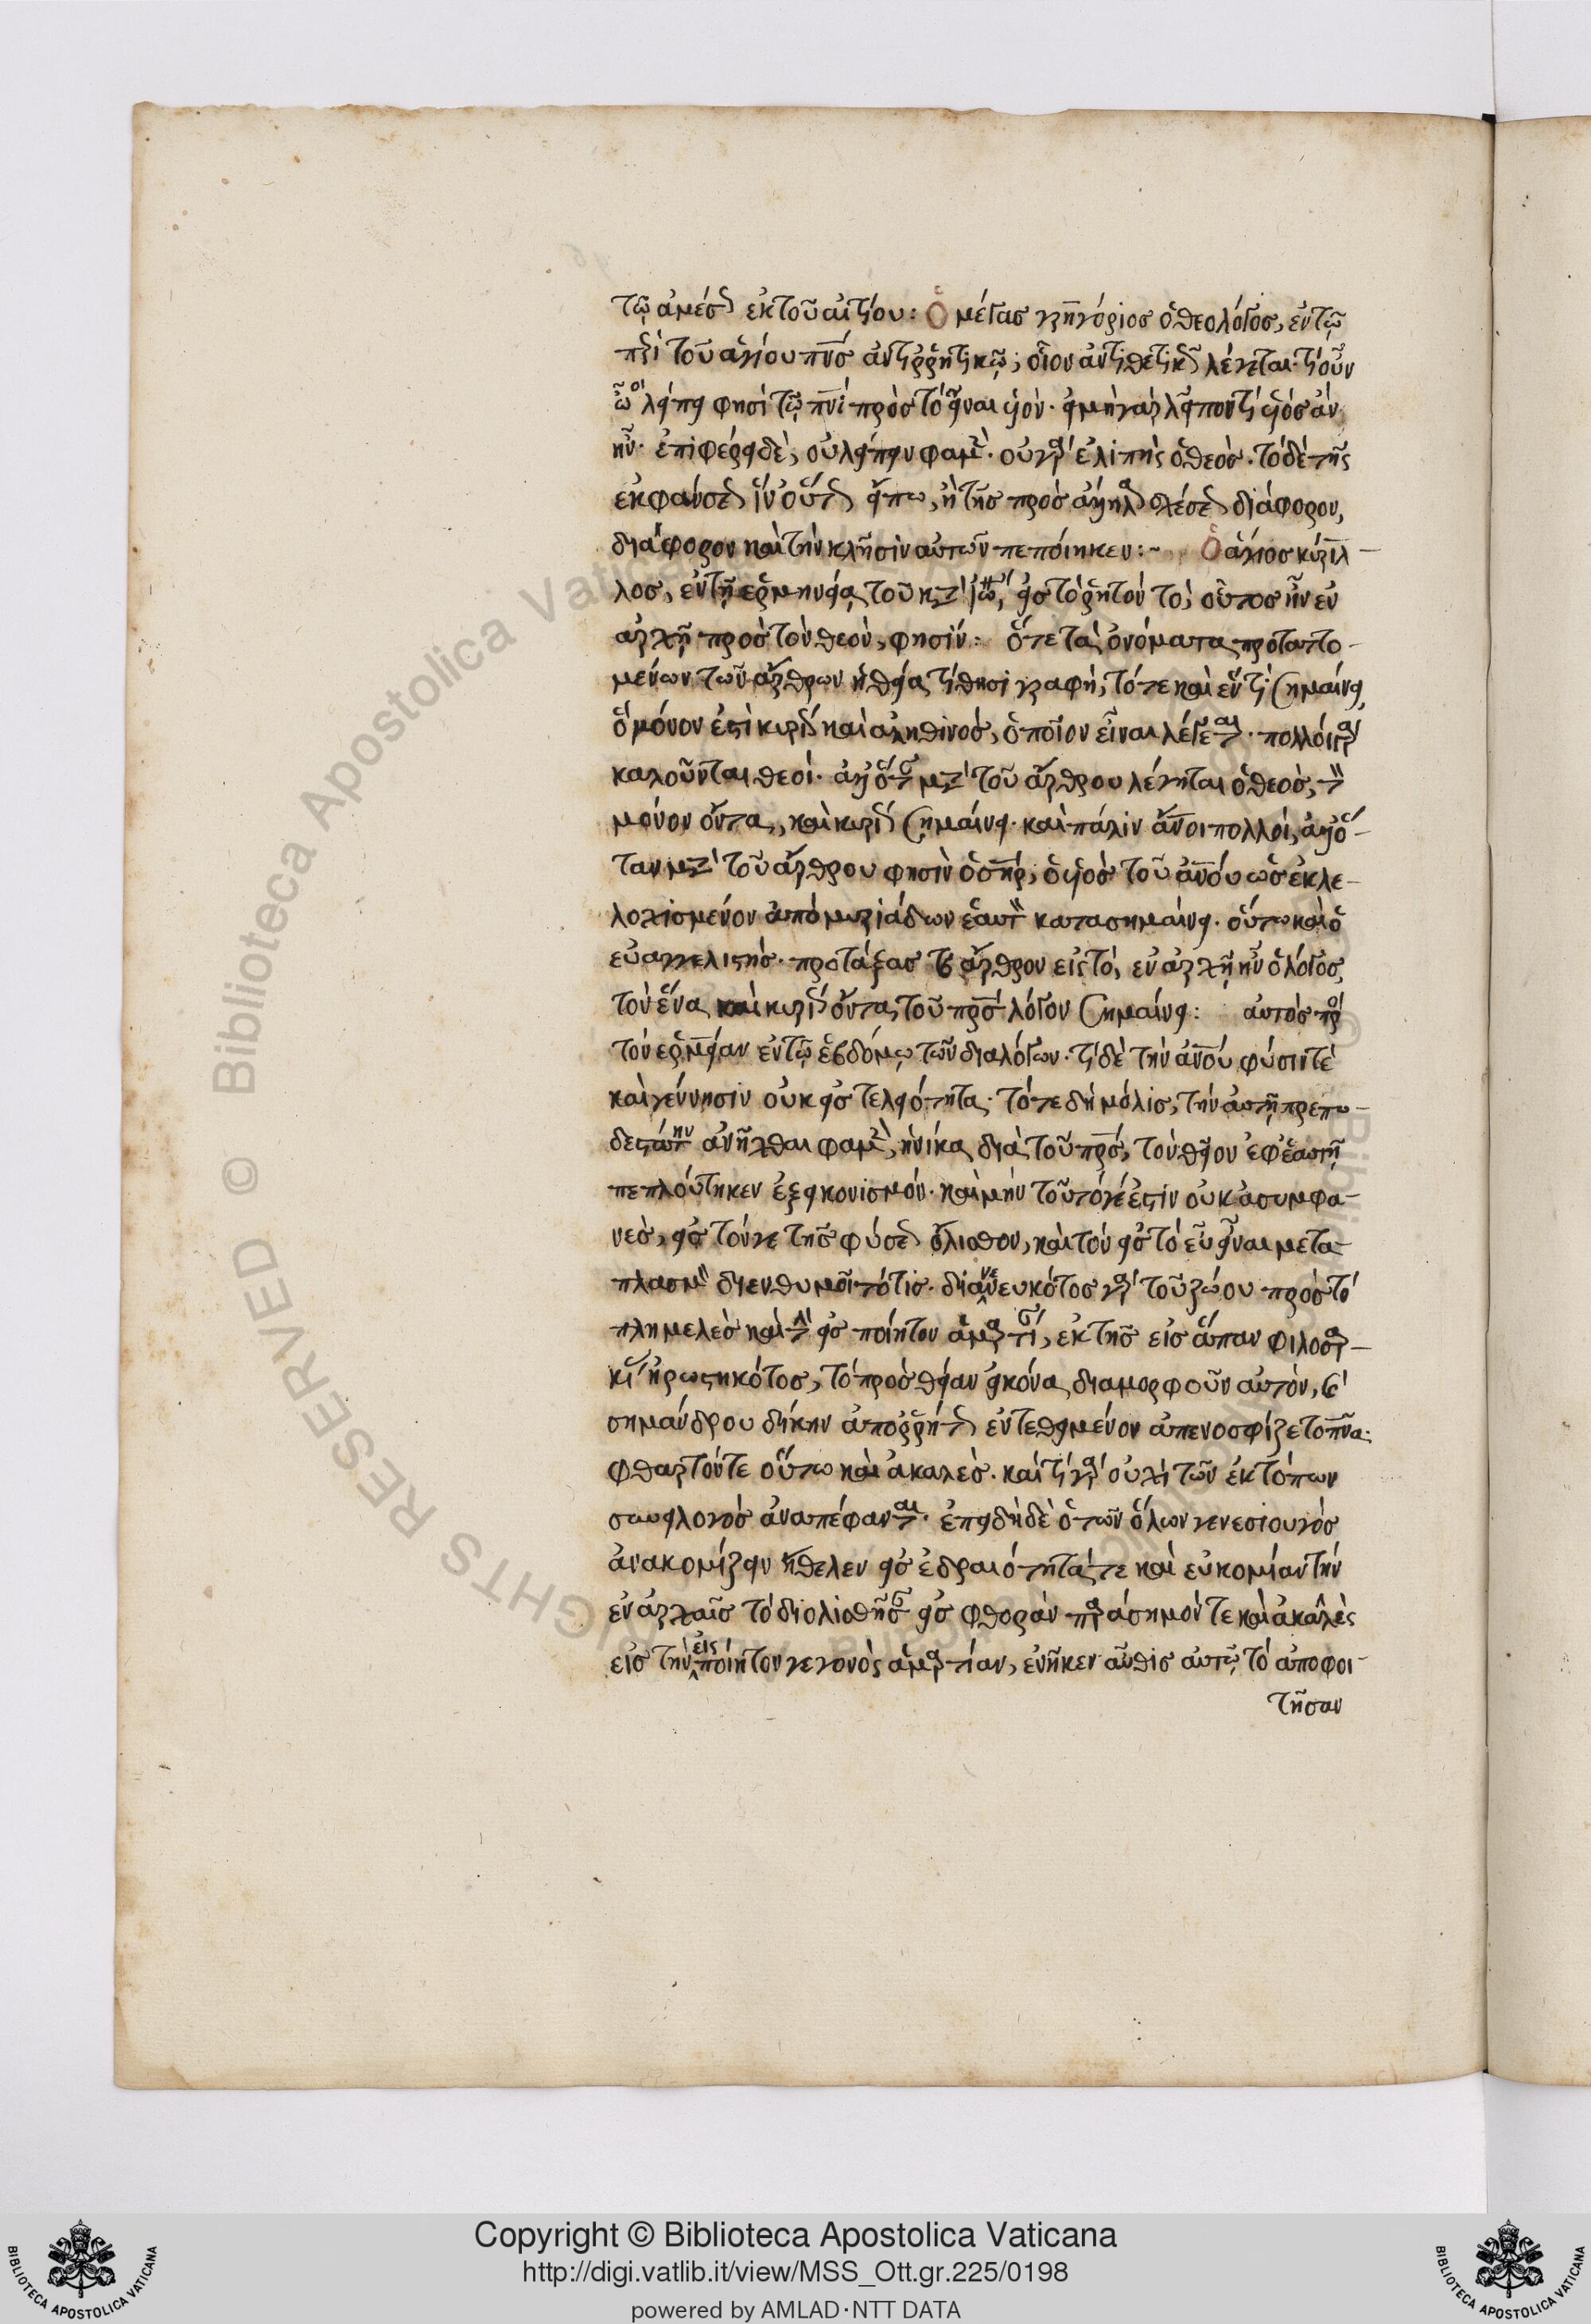 τῷ ἀμέσως ἐκ τοῦ αἰτίου: Ὁ μέγας γρηγόριος ὁ θεολόγος, ἐν τῷ
περὶ τοῦ ἁγίου πνς ἀντιρρητικῷ, οἷον ἀντιθετικῶς λέγεται. τί οὖν
λείπει φησὶ τῷ πνι πρὸς τὸ εἶναι υἱόν. εἰ μὴ γὰρ λεῖπόν τι υἱὸς ἂν
ἦν. ἐπιφέρει δὲ, οὐ λείπειν φαμὲν. οὐ γὰρ ἐλιπὴς ὁ θεός. τὸ δὲ τῆς
ἐκφάνσεως ἵν' οὕτως εἴπω, ἢ τῆς πρὸς ἄλληλα σχέσεως διάφορον,
διάφορον καὶ τὴν κλῆσιν αὐτῶν πεποίηκεν:~ Ὁ ἅγιος κύριλ-
λος, ἐν τῇ ἑρμηνείᾳ τοῦ κατὰ ἰω, εἰς τὸ ῥητὸν τὸ, οὗτος ἦν ἐν
ἀρχῇ πρὸς τὸν θεόν, φησίν: ὅτε τὰ ὀνόματα προταττο-
μένων τῶν ἄρθρων ἡ θεία τίθησι γραφή, τότε καὶ ἕν τι σημαίνει,
ὃ μόνον ἐστὶ κυρίως καὶ ἀληθινός, ὁποῖον εἶναι λέγεται. πολλοὶ γὰρ
καλοῦνται θεοί. ἀλλ' ὅταν μετὰ τοῦ ἄρθρου λέγηται ὁ θεός, τὸν
μόνον ὄντα, καὶ κυρίως σημαίνει. καὶ πάλιν ἄνοι πολλοί, ἀλλ' ὅ-
ταν μετὰ τοῦ ἄρθρου φησὶν ὁ σηρ, ὁ υἱὸς τοῦ ἀνου ὡς ἐκλε-
λοχισμένον ἀπὸ μυριάδων ἑαυτὸν κατασημαίνει. οὕτω καὶ ὁ
εὐαγγελιστής. προτάξας τὸ ἄρθρον εἰς τὸ, ἐν ἀρχῇ ἦν ὁ λόγος,
τὸν ἕνα καὶ κυρίως ὄντα τοῦ πρς λόγον σημαίνει: αὐτὸς πρὸς
τὸν ἑρμείαν ἐν τῷ ἑβδόμῳ τῶν διαλόγων. τί δὲ τὴν ἀνου φύσιν τὲ
καὶ γέννησιν οὐκ εἰς τελειότητα. τότε δὴ μόλις, τὴν αὐτῇ πρεπω-
δεστάτην ἀνῆχθαι φαμὲν, ἡνίκα διὰ τοῦ πρς, τὸν θεῖον ἐφ' ἑαυτῇ
πεπλούτηκεν ἐξεικονισμόν. καὶ μὴν τοῦτό γέ ἐστιν οὐκ ἀσυμφα-
νὲς, εἰς τόν γε τῆς φύσεως ὄλισθον, καὶ τὸν εἰς τὸ εὖ εἶναι μετα-
πλασμὸν διενθυμοῖτό τις. διανενευκότος γὰρ τοῦ ζώου πρὸς τὸ
πλημμελὲς καὶ τὴν εἰσποίητον ἁμαρτίαν, ἐκ τῆς εἰς ἅπαν φιλοσαρ-
κίας ἠρρωστηκότος, τὸ πρὸς θείαν εἰκόνα διαμορφοῦν αὐτὸν, καὶ
σημάνδρου δίκην ἀπορρήτως ἐντεθειμένον ἀπενοσφίζετο πνα.
φθαρτόν τε οὕτω καὶ ἀκαλλὲς. καὶ τί γὰρ οὐχὶ τῶν ἐκτόπων
ἀναπέφανται. ἐπειδὴ δὲ ὁ τῶν ὅλων γενεσιουργὸς
ἀνακομίζειν ἤθελεν εἰς ἑδραιότητά τε καὶ εὐκοσμίαν τὴν
ἐν ἀρχαῖς τὸ διολισθῆσαν εἰς φθορὰν παράσημόν τε καὶ ἀκαλλὲς
εἰς τὴν εἰσποίητον γεγονὸς ἁμαρτίαν, ἐνῆκεν αὖθις αὐτῷ τὸ ἀποφοι-
τῆσαν
Copyright © Biblioteca Apostolica Vaticana
http://digi.vatlib.it/view/MSS_Ott.gr.225/0198
powered by AMLAD·NTT DATA